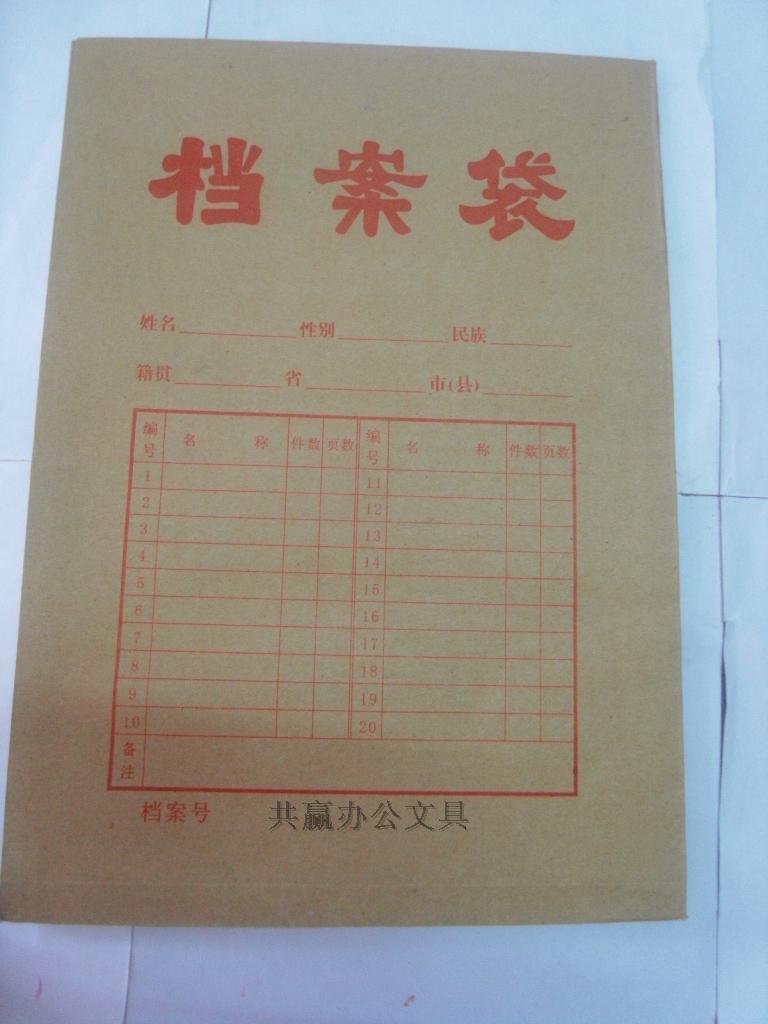 档案袋
姓名 性别 民族
籍贯 省 市(县)
编号 名称 件数 页数 编号 名称 件数 页数
1 11
2 12
3 13
4 14
5 15
6 16
7 17
8 18
9 19
10 20
备注
档案号 共赢办公文具